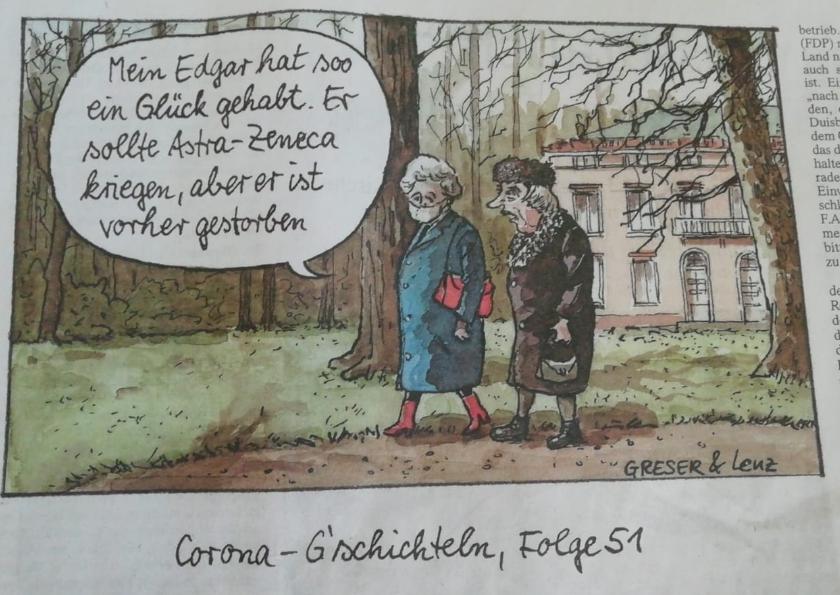 Mein Edgar hat soo
ein Glück gehabt. Er
sollte Astra-Zeneca
kriegen, aber er ist
vorher gestorben
GRESER & Lenz
Corona - G'schichteln, Folge 51
betrieb.
(FDP)
Land n
auch s
ist. Ei
„nach
den,
Duisb
dem
das d
halte
rade
Einw
schl
F.A
me
bit
zu
de
R
d